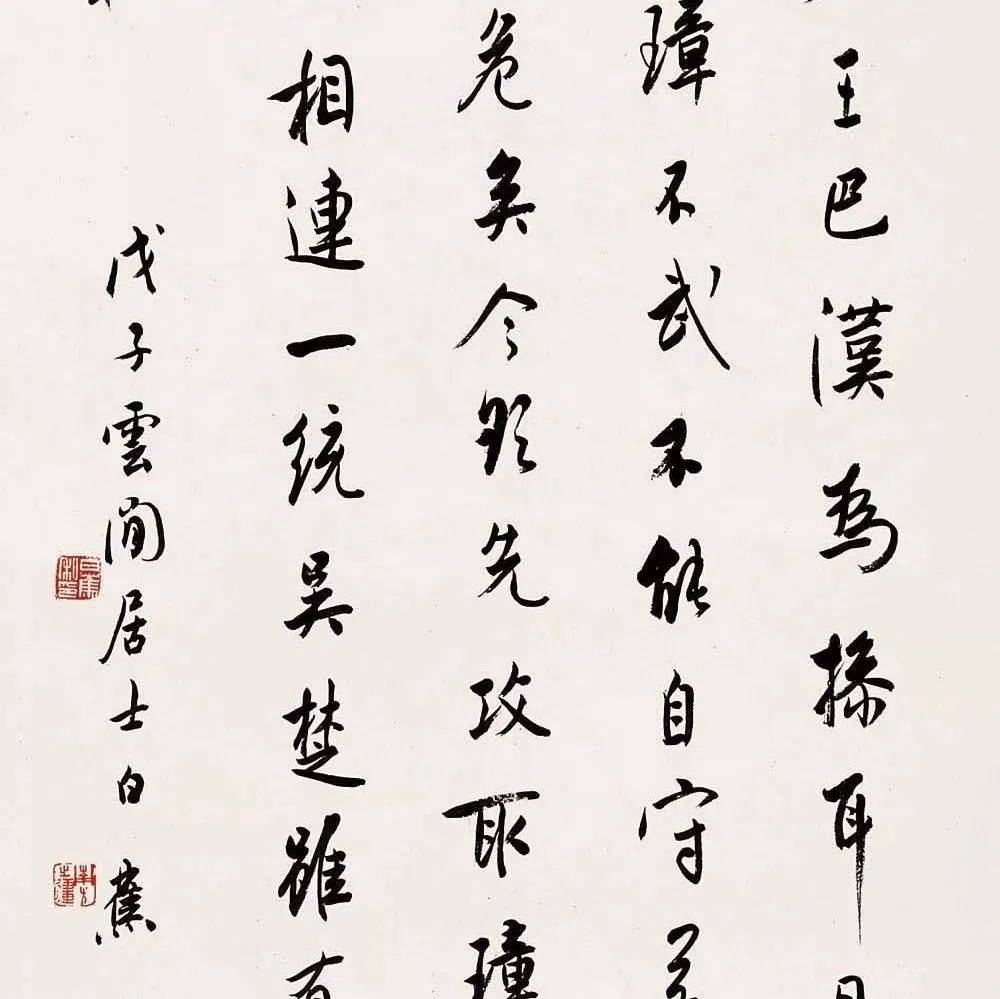 王巴漢為操耳目
璋不武不能自守若
危矣今欲先攻取璋
相連一統吳楚雖有
戊子雲間居士白蕉